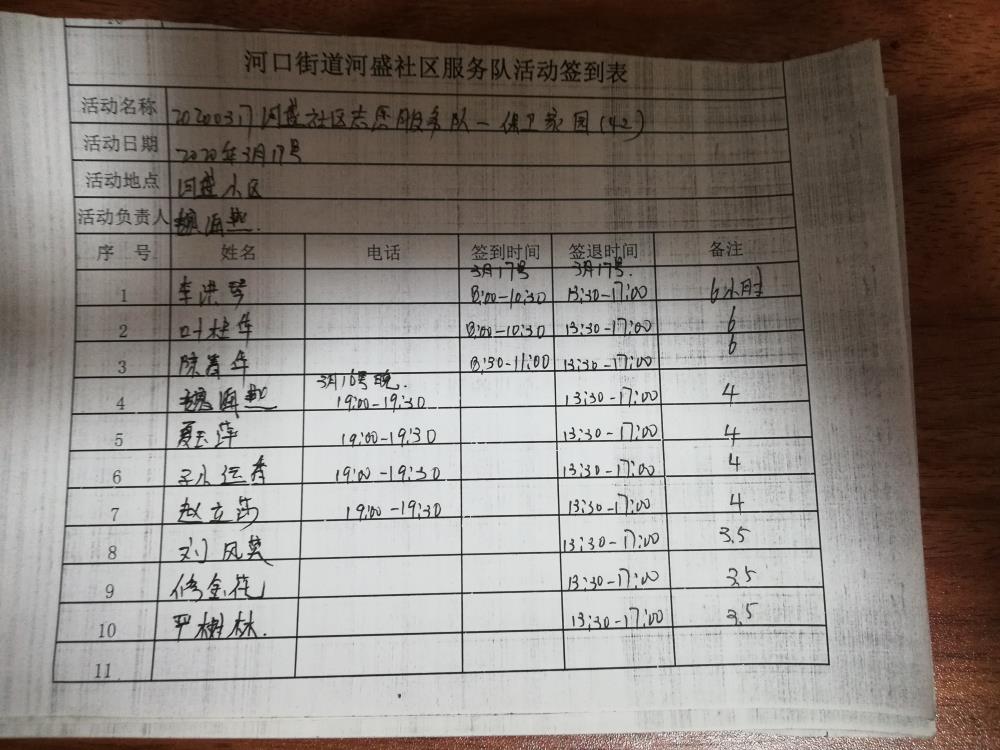 河口街道河盛社区服务队活动签到表
活动名称 20200317河盛社区志愿服务队一保卫家园(42)
活动日期 2020年3月17号
活动地点 河盛小区
活动负责人 魏海燕.
序 号 姓名 电话 签到时间 签退时间 备注
3月17号 3月17号.
1 李洪琴 8:00-10:30 13:30-17:00 6小时
2 叶桂华 8:00-10:30 13:30-17:00 6
3 陈春华 8:30-11:00 13:30-17:00 6
3月16号晚.
4 魏海燕 19:00-19:30 13:30-17:00 4
5 夏玉萍 19:00-19:30 13:30-17:00 4
6 19:00-19:30 13:30-17:00 4
7 赵立莎 19:00-19:30 13:30-17:00 4
8 刘凤英 13:30-17:00 3.5
9 修金花 13:30-17:00 3.5
10 严树林. 13:30-17:00 3.5
11